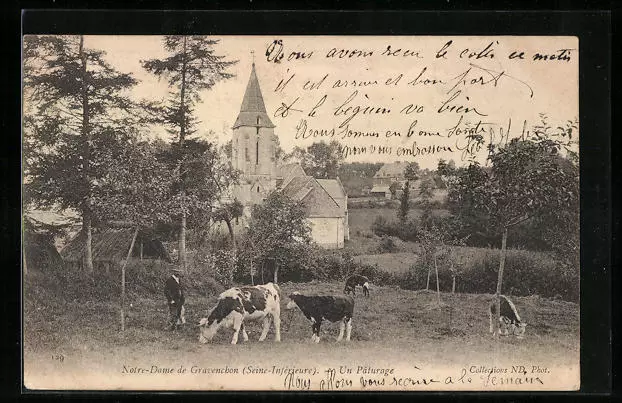 Nous avons recu le colis ce matin
il est arrivé et bon port
et le béguin va bien
Nous sommes en bonne santé
nous vous embrassons
129
Notre-Dame de Gravenchon (Seine-Inférieure). — Un Pâturage
Collections ND. Phot.
Nous vous récrirons à la semain